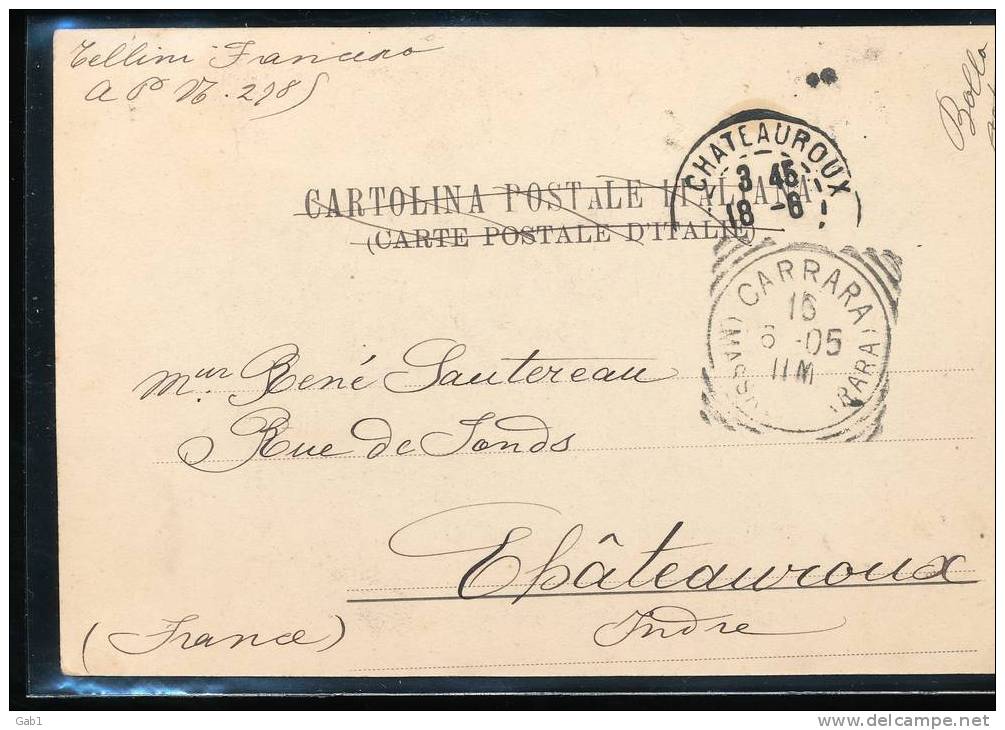 Tellini Francesco
A P N. 2985
Bollo
CHATEAUROUX
3 45
18 -6
CARTOLINA POSTALE ITALIANA
(CARTE POSTALE D'ITALIE)
CARRARA
16
6 -05
11M
(MASSA RARA)
Mur René Sautereau
Rue de Fonds
Châteauroux
Indre
(France)
Gab1
www.delcampe.net